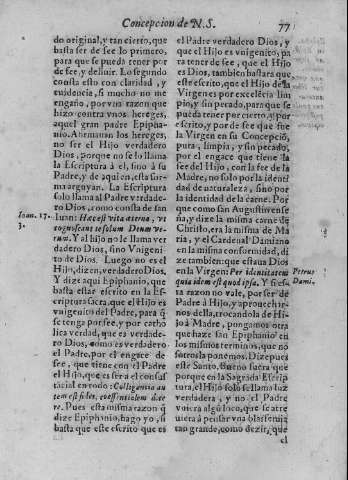 Concepcion de N.S. 77
do original, y tan cierto, que
basta ser de fee lo primero,
para que se pueda tener por
de fee, y definir. Lo segundo
consta esto con claridad, y
euidencia, si mucho no me
engaño, por vna razon que
hizo contra vnos hereges,
aquel gran padre Epipha-
nio. Afirmauan los hereges,
no ser el Hijo verdadero
Dios, porque no se lo llama
la Escriptura à el, sino à su
Padre, y de aqui en esta for-
ma arguyan. La Escriptura
solo llama al Padre verdade-
ro Dios, como consta de san
Ioan. 17. Iuan: Hæc est vita æterna, vt
3. cognoscant te solum Deum ve-
rum. Y al hijo no le llama ver
dadero Dios, sino Vnigeni-
to de Dios. Luego no es el
Hijo, dizen, verdadero Dios.
Y dize aqui Epiphanio, que
basta estar escrito en la Es-
criptura sacra, que el Hijo es
vnigenito del Padre, para q̃
se tenga por fee, y por catho
lica verdad, que es verdade-
ro Dios, como es verdadero
el Padre, por el engace de
fee, que tiene con el Padre
el Hijo, que es ser a el consus
tacial en todo: Colligantia au
tem est fides, coessentialem dice
re. Pues esta misma razon q̃
dize Epiphanio, hago yo, si
basta que este escrito que es
el Padre verdadero Dios, y
que el Hijo es vnigenito, pa
ra tener de fee, que el Hijo
es Dios, tambien bastara que
este escrito, que el Hijo de la
Virgen es por excelēcia lim
pio, y sin pecado, para que se
pueda tener por cierto, y por
escrito, y por de fee que fue
la Virgen en su Concepciō,
pura, limpia, y sin pecado,
por el engace que tiene la
fee del Hijo, con la fee de la
Madre, no solo por la identi
dad de naturaleza, sino por
la identidad de la carne. Por
que como san Augustin ense
ña, y dize la misma carne de
Christo, era la misma de Ma
ria, y el Cardenal Damiano
en la misma conformidad, di
ze tambien: que estaua Dios
en la Virgen: Per identitatem Petrus
quia idem est quod ipsa. Y si esta Dami.
razon no vale, por ser de
Padre à Hijo, y aprouechir-
nos della, trocandola de Hijo
à Madre, pongamos otra
que haze san Epiphanio en
los mismos terminos, que no
sotros la ponemos. Dize pues
este Santo. Bueno fuera que
porque en la Sagrada Escrip
tura, el Hijo solo se llama luz
verdadera, y no el Padre
vuiera algũ loco, que se atre
uiera à pensar vna blasfemia
tan grande, como dezir, que
el